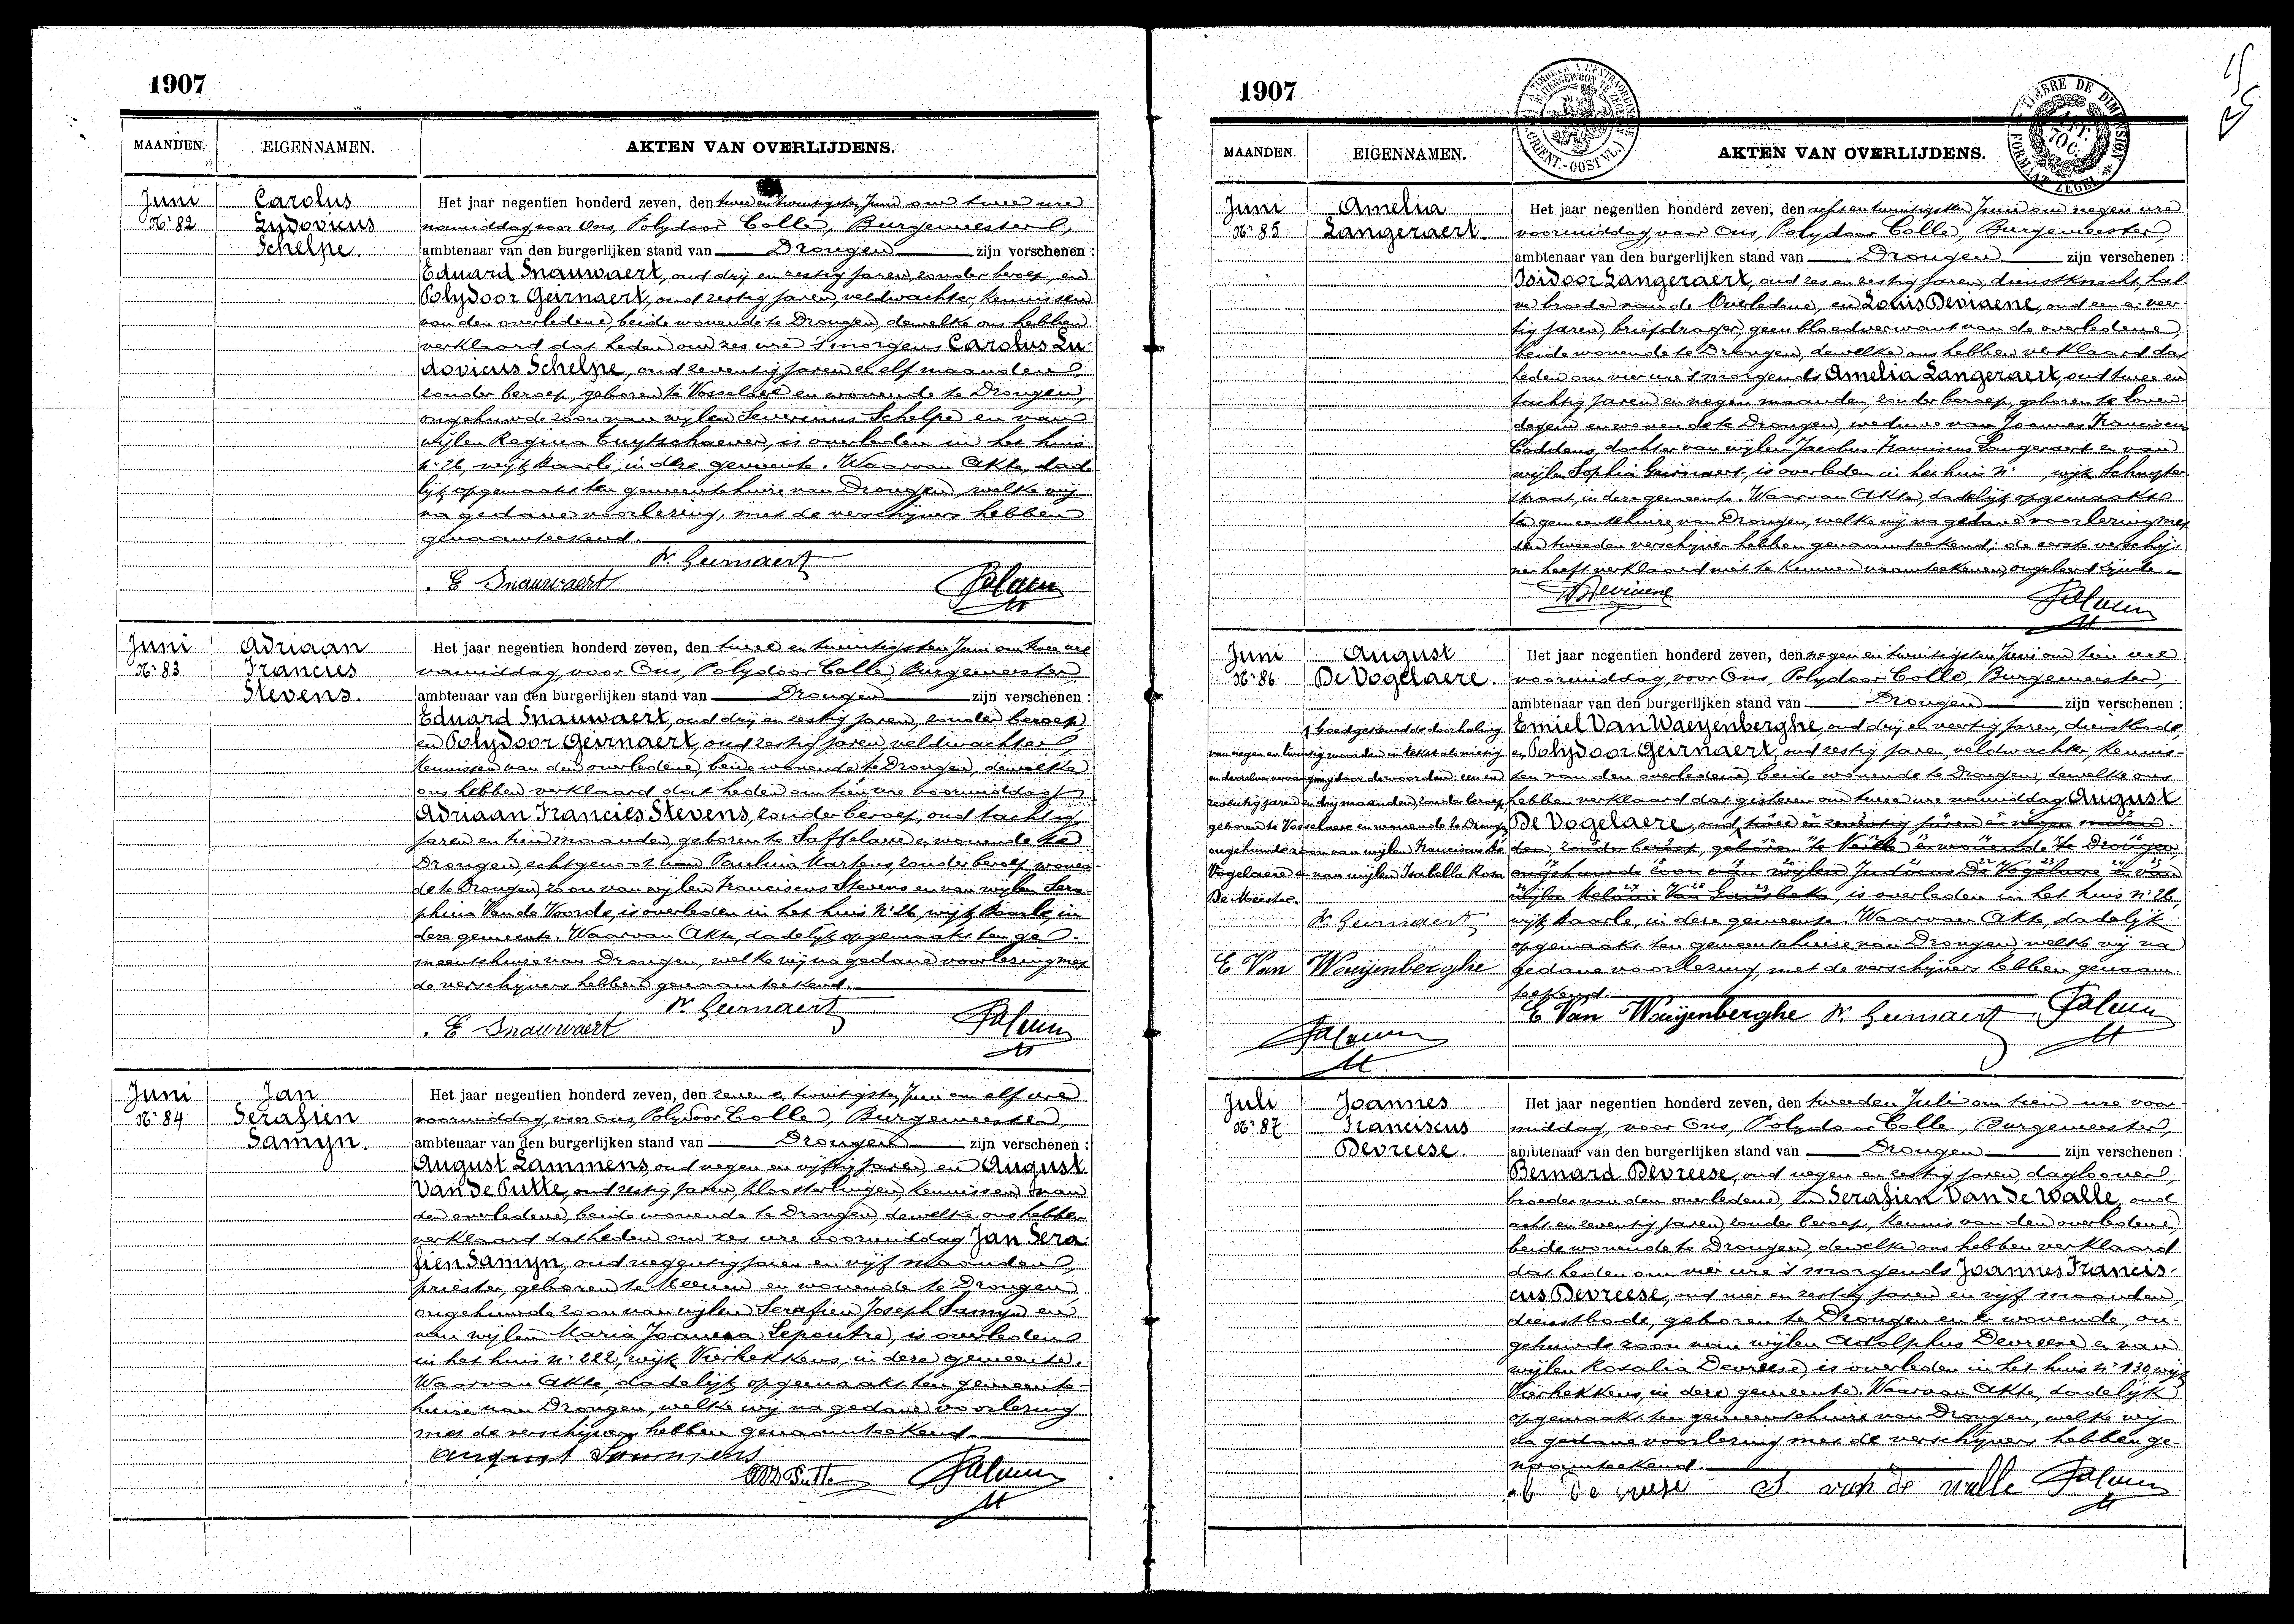 1907
MAANDEN.
EIGENNAMEN.
AKTEN VAN OVERLIJDENS.
Juni
N.r 82
Carolus
Ludovicus
Schelpe.
Het jaar negentien honderd zeven, den twee en twintigsten Juni om twee ure
namiddag, voor Ons, Polydoor Colle, Burgemeester,
ambtenaar van den burgerlijken stand van Drongen zijn verschenen :
Eduard Snauwaert, oud drij en zestig jaren, zonder beroep, en
Polydoor Geirnaert, oud zestig jaren, veldwachter, kennissen
van den overledene, beide wonende te Drongen, dewelke ons hebben
verklaard dat heden om zes ure 's morgens Carolus Lu-
dovicus Schelpe, oud zeventig jaren en elf maanden,
zonder beroep, geboren te Vosselare en wonende te Drongen,
ongehuwde zoon van wijlen Severinus Schelpe en van
wijlen Regina Cuytschaever, is overleden in het huis
N.r 26, wijk Baarle, in deze gemeente. Waarvan Akte, dade-
lijk opgemaakt ten gemeentehuize van Drongen, welke wij
na gedane voorlezing, met de verschijners hebben
genaamteekend.
P. Geirnaert
E Snauwaert
Juni
N.r 83
Adriaan
Francies
Stevens.
Het jaar negentien honderd zeven, den twee en twintigsten Juni om twee ure
namiddag, voor Ons, Polydoor Colle, Burgemeester,
ambtenaar van den burgerlijken stand van Drongen zijn verschenen :
Eduard Snauwaert, oud drij en zestig jaren, zonder beroep
en Polydoor Geirnaert, oud zestig jaren, veldwachter,
kennissen van den overledene, beide wonende te Drongen, dewelke
ons hebben verklaard dat heden om tien ure voormiddag
Adriaan Francies Stevens, zonder beroep, oud tachtig
jaren en tien maanden, geboren te Saffelare en wonende te
Drongen, echtgenoot van Paulina Martens, zonder beroep wonen-
de te Drongen, zoon van wijlen Franciscus Stevens en van wijlen Sera-
phina Van de Voorde, is overleden in het huis N.r 26, wijk Baarle, in
deze gemeente. Waarvan Akte, dadelijk opgemaakt ten ge-
meentehuize van Drongen, welke wij na gedane voorlezing met
de verschijners hebben genaamteekend.
P. Geirnaert
E Snauwaert
Juni
N.r 84
Jan
Serafien
Samyn.
Het jaar negentien honderd zeven, den zeven en twintigsten Juni om elf ure
voormiddag, voor Ons, Polydoor Colle, Burgemeester,
ambtenaar van den burgerlijken stand van Drongen zijn verschenen :
August Lammens, oud negen en vijftig jaren, en August
Van de Putte, oud zestig jaren, kloosterlingen, kennissen van
den overledene, beide wonende te Drongen, dewelke ons hebben
verklaard dat heden om zes ure voormiddag Jan Sera-
fien Samyn, oud negentig jaren en vijf maanden,
priester, geboren te Meenen en wonende te Drongen,
ongehuwde zoon van wijlen Serafien Joseph Samyn en
van wijlen Maria Joanna Lepoutre, is overleden
in het huis N.r 222, wijk Vierhekkens, in deze gemeente.
Waarvan Akte, dadelijk opgemaakt ten gemeente-
huize van Drongen, welke wij na gedane voorlezing
met de verschijners hebben genaamteekend.
August Lammens
1907
MAANDEN.
EIGENNAMEN.
AKTEN VAN OVERLIJDENS.
TIMBRE DE DIMENSION
FORMAAT ZEGEL
Juni
N.r 85
Amelia
Langeraert.
Het jaar negentien honderd zeven, den acht en twintigsten Juni om negen ure
voormiddag, voor Ons, Polydoor Colle, Burgemeester,
ambtenaar van den burgerlijken stand van Drongen zijn verschenen :
Isidoor Langeraert, oud zes en zestig jaren, dienstknecht, hal-
ve broeder van de Overledene, en Louis Deviaene, oud een en veer-
tig jaren, briefdrager, geen bloedverwant van de overledene,
beide wonende te Drongen, dewelke ons hebben verklaard dat
heden om vier ure 's morgends Amelia Langeraert, oud twee en
tachtig jaren en negen maanden, zonder beroep, geboren te Loven-
degem en wonende te Drongen, weduwe van Joannes Franciscus
Coddens, dochter van wijlen Jacobus Franciscus Langeraert en van
wijlen Sophia Geirnaert, is overleden in het huis N.r wijk Schuyter-
straat, in deze gemeente. Waarvan Akte, dadelijk opgemaakt
te gemeentehuize van Drongen, welke wij na gedane voorlezing met
den tweeden verschijner hebben genaamteekend; de eerste verschij-
ner heeft verklaard niet te kunnen naamteekenen, ongeleerd zijnde.
Juni
N.r 86
August
De Vogelaere.
Het jaar negentien honderd zeven, den negen en twintigsten Juni om tien ure
voormiddag, voor Ons, Polydoor Colle, Burgemeester,
ambtenaar van den burgerlijken stand van Drongen zijn verschenen :
Emiel Van Waeyenberghe, oud drij en veertig jaren, dienstbode,
en Polydoor Geirnaert, oud zestig jaren, veldwachter, kennis-
sen van den overledene, beide wonende te Drongen, dewelke ons
hebben verklaard dat gisteren om twee ure namiddag August
De Vogelaere, oud twee en zeventig jaren en negen maan-
den, zonder beroep, geboren te Nevele en wonende te Drongen
ongehuwde zoon van wijlen Judocus De Vogelaere en van
wijlen Melanie Van Gansbeke, is overleden in het huis N.r 26,
wijk Baarle, in deze gemeente. Waarvan Akte, dadelijk
opgemaakt ten gemeentehuize van Drongen, welke wij na
gedane voorlezing, met de verschijners hebben genaam-
teekend.
Goedgekend de doorhaling
van negen en twintig woorden in tekst als nietig
en dezelve vervanging door de woorden: een en
zeventig jaren en drij maanden, zonder beroep,
geboren te Vosselaere en wonende te Drongen,
ongehuwde zoon van wijlen Franciscus De
Vogelaere en van wijlen Isabella Rosa
De Meester.
P. Geirnaert
E Van Waeyenberghe
E Van Waeyenberghe P. Geirnaert
Juli
N.r 87
Joannes
Franciscus
Devreese.
Het jaar negentien honderd zeven, den tweeden Juli om tien ure voor-
middag, voor Ons, Polydoor Colle, Burgemeester,
ambtenaar van den burgerlijken stand van Drongen zijn verschenen :
Bernard Devreese, oud negen en zestig jaren, daglooner,
broeder van den overledene, en Serafien Van de Walle, oud
acht en zeventig jaren, zonder beroep, kennis van den overledene,
beide wonende te Drongen, dewelke ons hebben verklaard
dat heden om vier ure 's morgends Joannes Francis-
cus Devreese, oud vier en zestig jaren en vijf maanden,
dienstbode, geboren te Drongen en er wonende, on-
gehuwde zoon van wijlen Adolphus Devreese en van
wijlen Rosalia Devreese, is overleden in het huis N.r 130, wijk
Vierhekkens, in deze gemeente. Waarvan Akte, dadelijk
opgemaakt ten gemeentehuize van Drongen, welke wij
na gedane voorlezing met de verschijners hebben ge-
naamteekend.
b De vreese S. van de walle